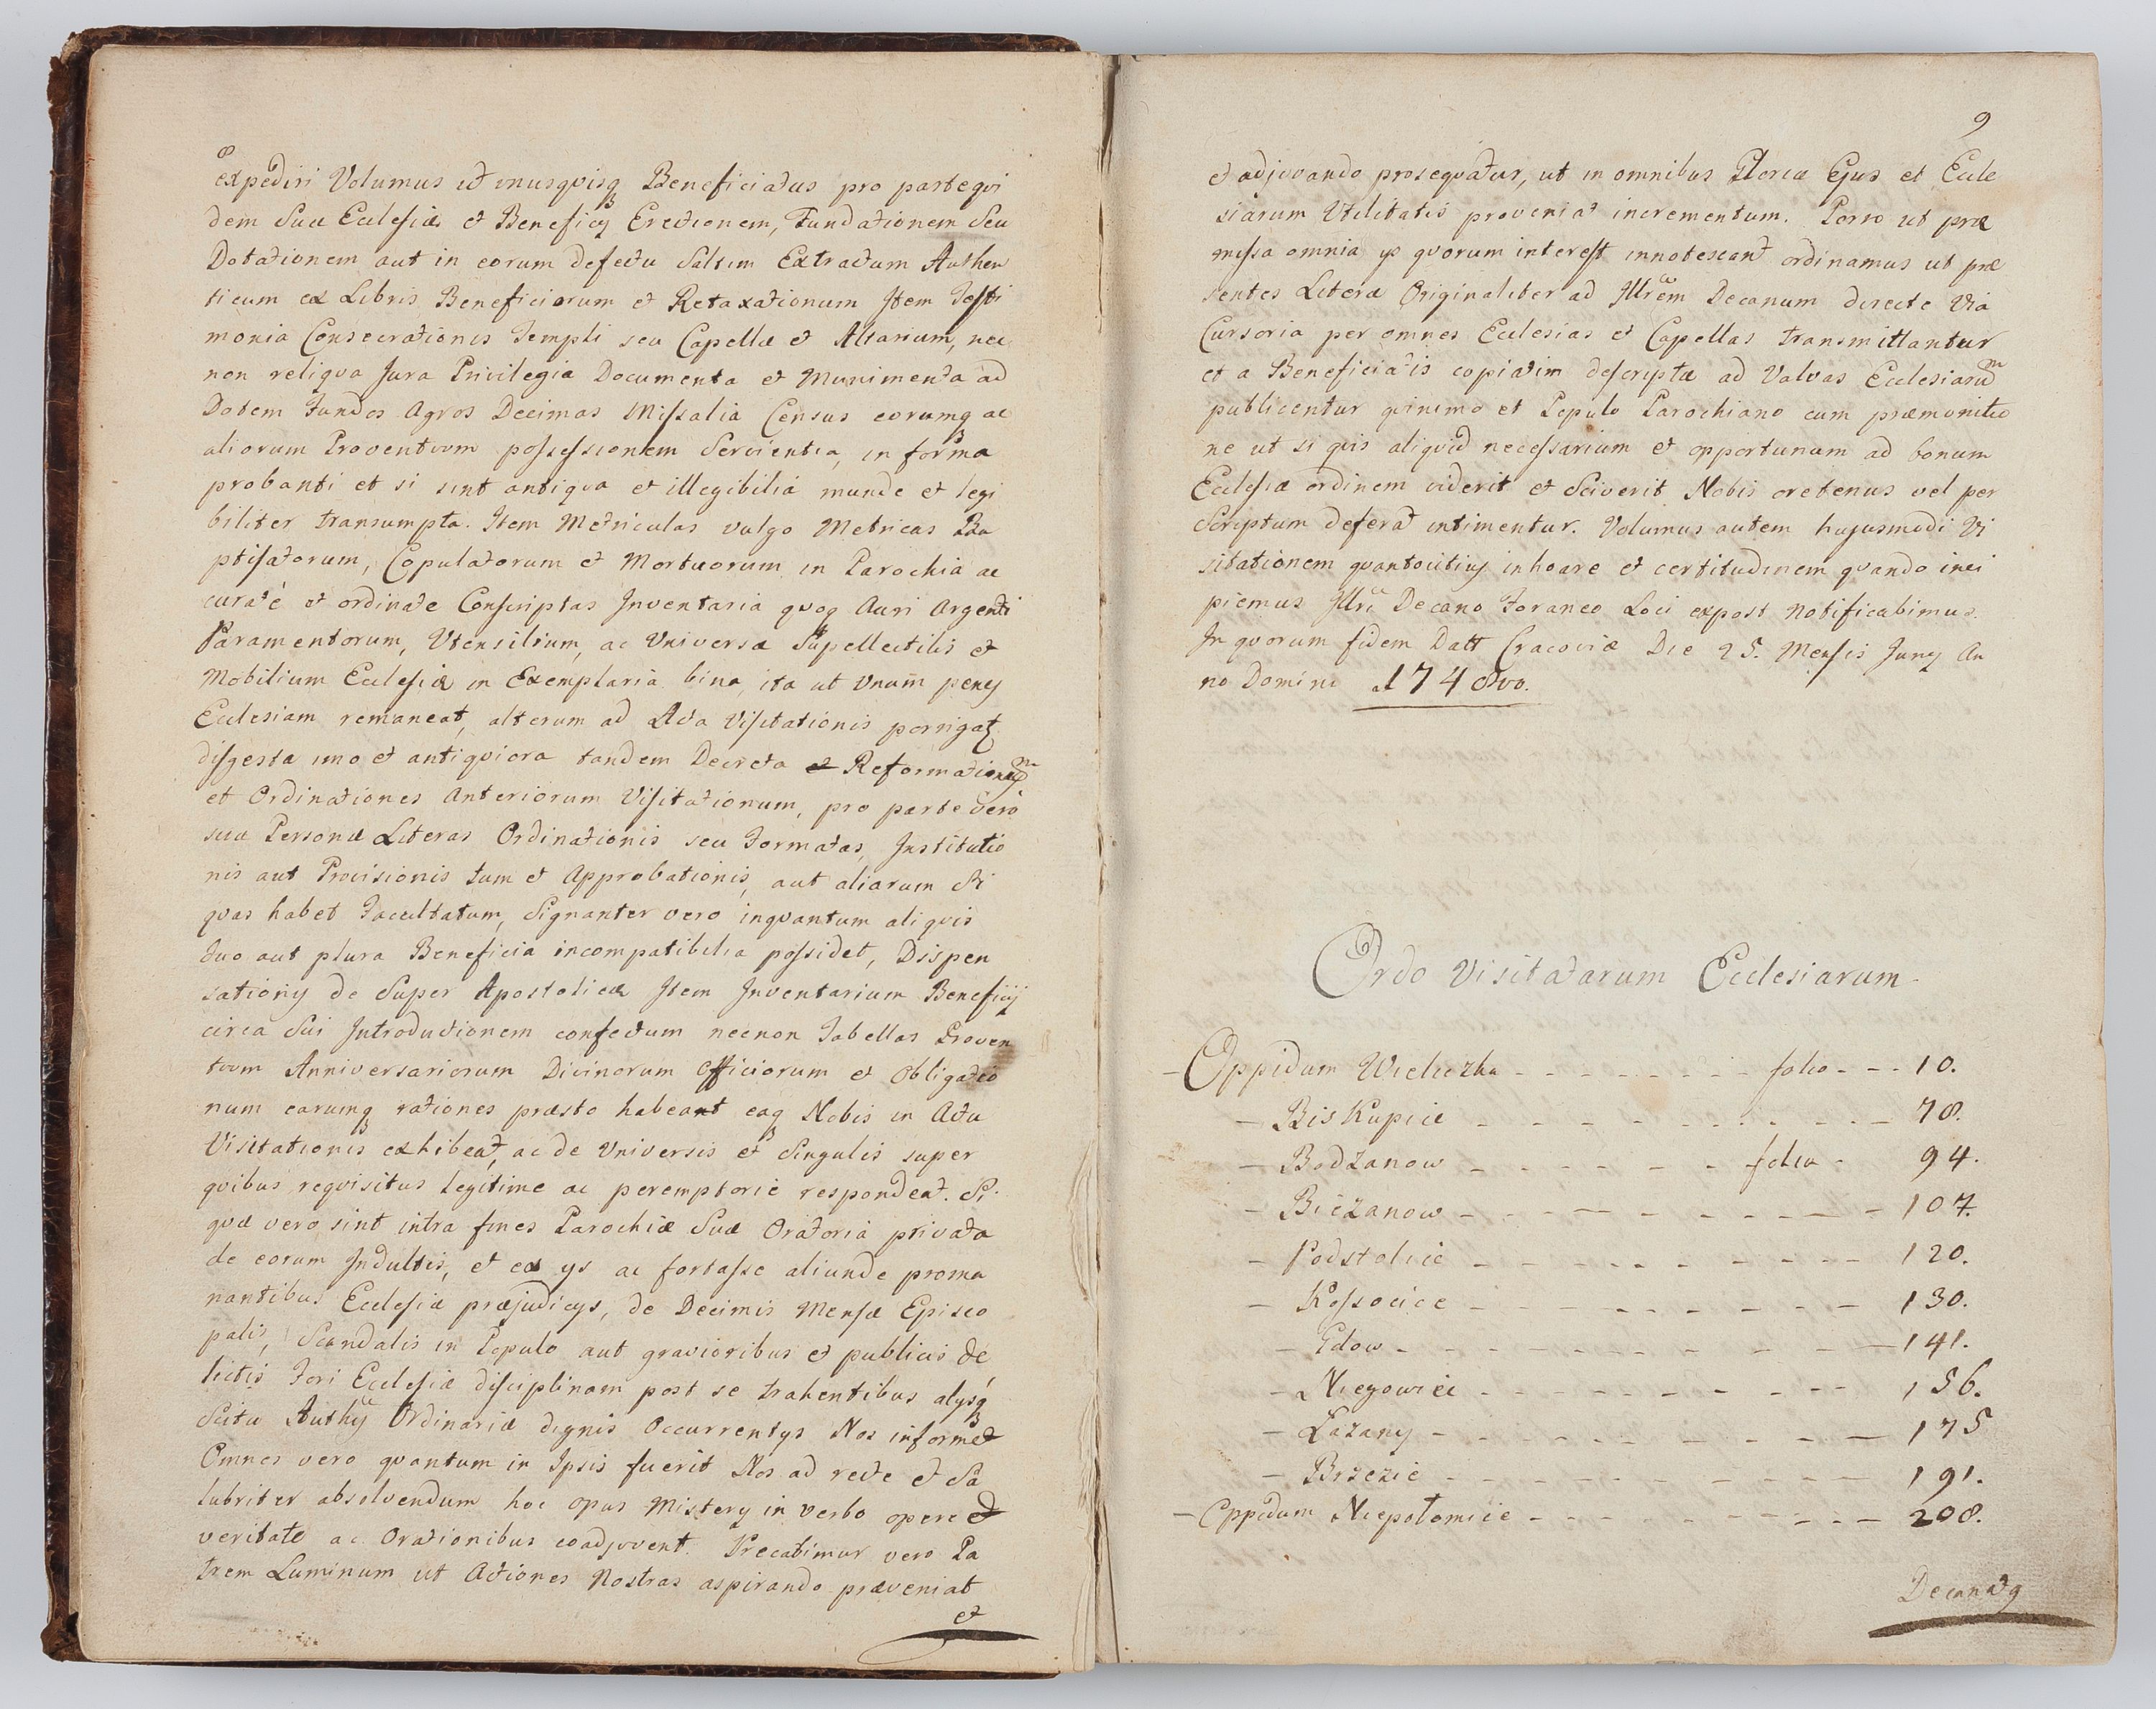 8
expediri Volumus ut unusqvisq Beneficiatus pro parte qvi
dem Suæ Ecclesiæ et Beneficij Erectionem, Fundationem Seu
Dotationem aut in eorum defectu Saltem Extractum Authen
ticum ex Libris Beneficiorum et Retaxationum Item Testi
monia Consecrationis Templi seu Capellæ et Altarium, nec
non reliqva Jura Privilegia Documenta et Munimenta ad
Dotem Fundos Agros Decimas Missalia Census eorumq ac
aliorum Proventuum possessionem Servientia, in forma
probanti et si sint antiqva et illegibilia munde et legi
biliter transumpta. Item Metriculas vulgo Metricas Ba
ptisatorum, Copulatorum et Mortuorum in Parochia ac
curate et ordinate Conscriptas Inventaria qvoq Auri Argenti
Paramentorum, Utensilium, ac Universæ Supellectilis et
Mobilium Ecclesiæ in Exemplaria bina, ita ut Unum penes
Ecclesiam remaneat, alterum ad Acta Visitationis porrigat
disgesta imo et antiqviora tandem Decreta Reformationum
et Ordinationes Anteriorum Visitationum, pro parte vero
suæ Personæ Literas Ordinationis seu Formatas, Institutio
nis aut Provisionis tum et Approbationis, aut aliarum Si
qvas habet Facultatum, Signanter vero inqvantum aliqvis
duo aut plura Beneficia incompatibilia possidet, Dispen
sationis de Super Apostolicæ Item Inventarium Beneficij
circa Sui Introductionem confectum necnon Tabellas Proven
tuum Anniversariorum Divinorum Officiorum et Obligatio
num earumq rationes præsto habeant eaq Nobis in Actu
Visitationis exhibeat, ac de Universis et Singulis super
qvibus reqvisitus legitime ac peremptorie respondeat. Si
qvæ vero sint intra fines Parochiæ Suæ Oratoria privata
de eorum Indultis, et ex ys ac fortasse aliunde proma
nantibus Ecclesiæ præjudicys, de Decimis Mensæ Episco
palis, Scandalis in Populo aut gravioribus et publicis de
lictis Fori Ecclesiæ disciplinam post se trahentibus alysq
Scitu Authtis Ordinariæ dignis Occurrentys Nos informet
Omnes vero qvantum in Ipsis fuerit Nos ad recte et Sa
lubriter absolvendum hoc opus Mistery in verbo opere et
veritate ac Orationibus coadjuvent. Precabimur vero Pa
trem Luminum ut Actiones Nostras aspirando præveniat
et
9
et adjuvando proseqvatur, ut in omnibus Gloriæ Ejus et Eccle
siarum Utilitatis proveniat incrementum. Porro ut præ
missa omnia ys qvorum interest innotescant ordinamus ut præ
sentes Literæ Originaliter ad Illrem Decanum directe Via
Cursoria per omnes Ecclesias et Capellas transmittantur
et a Beneficiatis copiatim descriptæ ad Valvas Ecclesiarum
publicentur qvinimo et Populo Parochiano cum præmonitio
ne ut si qvis aliqvid necessarium et opportunum ad bonum
Ecclesiæ ordinem viderit et Sciverit Nobis oretenus vel per
Scriptum deferat intimentur. Volumus autem hujusmodi Vi
sitationem qvantocitius inhoare et certitudinem qvando inci
piemus Illri Decano Foraneo Loci expost notificabimus.
In qvorum fidem Datt Cracoviæ Die 25. Mensis Juny An
no Domini 1748vo.
Ordo Visitatarum Ecclesiarum
- Oppidum Wieliczka - - - - - - - - folio - - - 10.
- Biskupice - - - - - - - - - - 78.
- Bodzanow - - - - - - folio - 94.
- Bieżanow - - - - - - - - - - 107.
- Podstolice - - - - - - - - - - 120.
- Kossocice - - - - - - - - - 130.
- Gdow - - - - - - - - - - 141.
- Niegowice - - - - - - - - - 156.
- Łazany - - - - - - - - - 175
- Brzezie - - - - - - - - - - 191.
- Oppidum Niepołomice - - - - - - - - - - 208.
Decanatq